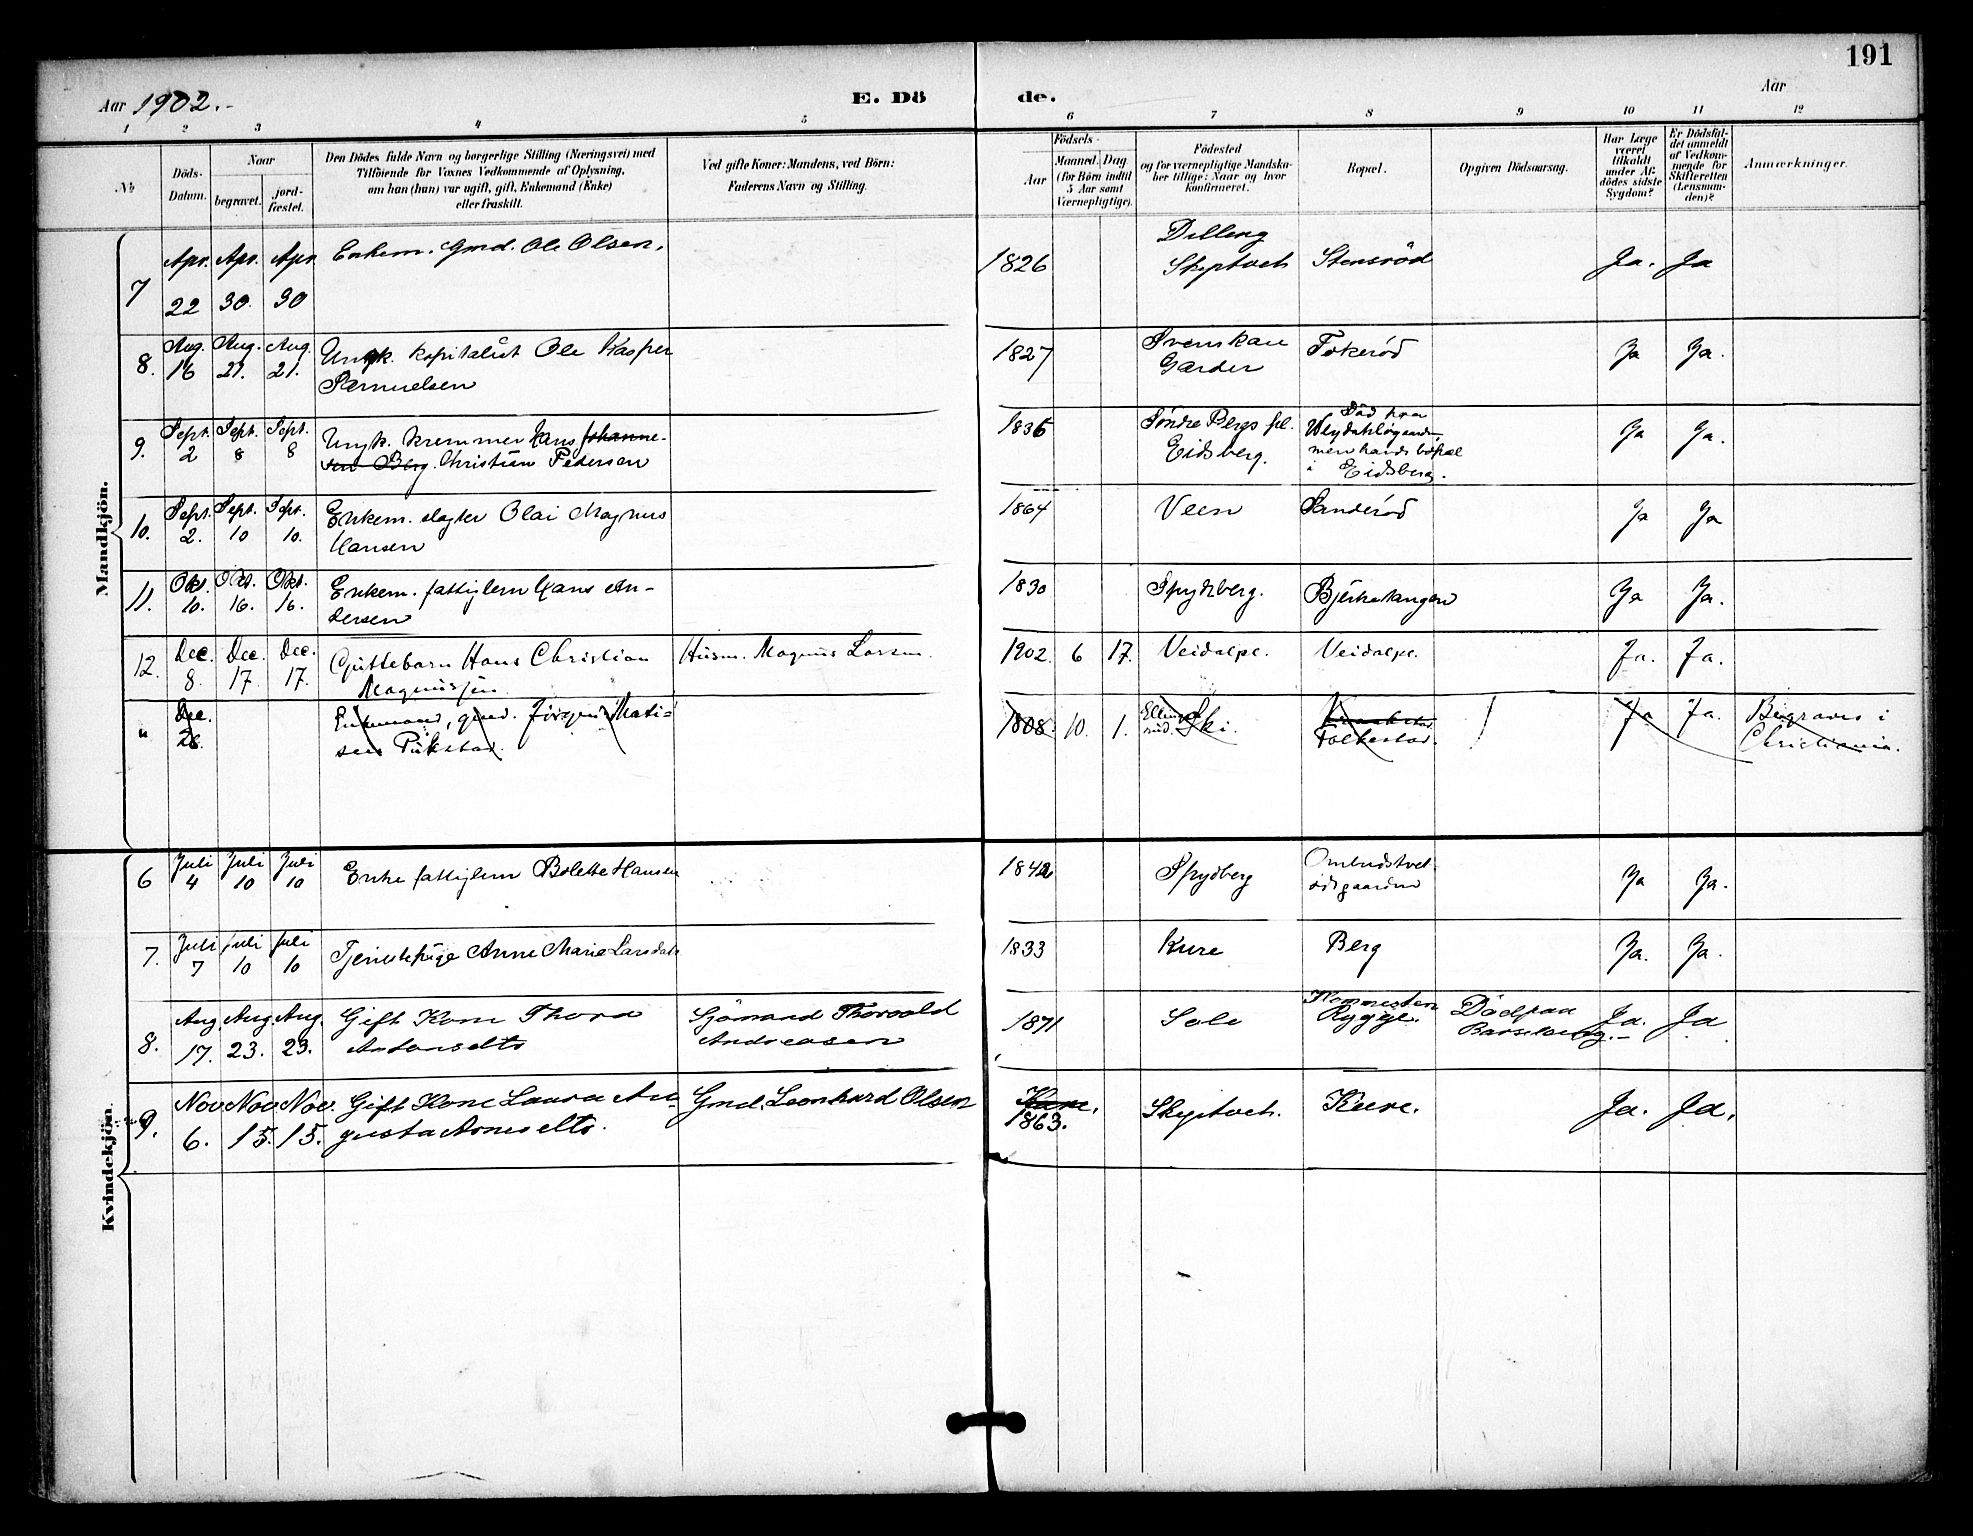 191
Aar 1902.-
E. Dö de.
Aar
1 2 3 4 5 6 7 8 9 10 11 12
No
Döds-
Datum.
Naar
begravet.
jord-
fæstet.
Den Dödes fulde Navn og borgerlige Stilling (Næringsvei) med
Tilföiende for Voxnes Vedkommende af Oplysning,
om han (hun) var ugift, gift, Enkemand (Enke)
eller fraskilt.
Ved gifte Koner: Mandens, ved Börn:
Faderens Navn og Stilling.
Födsels-
Aar
Maaned. Dag
(for Börn indtil
5 Aar samt
Værnepligtige).
Födested
og for værnepligtige Mandska-
ber tillige: Naar og hvor
konfirmeret.
Bopæl.
Opgiven Dödsaarsag.
Har Læge
været
tilkaldt
under Af-
dödes sidste
Sygdom?
Er Dödsfal-
det anmeldt
af Vedkom-
mende for
Skifteretten
(Lensman-
den)?
Anmærkninger.
Mandkjön.
7 Apr. 22 Apr. 30. Apr. 30 Enkem. Gmd. Ole Olsen. 1826 Dilleng Skeptvet Stensröd Ja. Ja
8. Aug. 16 Aug. 21. Aug. 21. Ungk. kapitalist Ole Kasper
Samuelsen 1827 Svenskau
Garder Tokeród Ja Ja.
9. Sept. 2 Sept. 8 Sept. 8 Ungk. kremmer Hans Johanne-
sen Berg. Christian Pedersen 1835 Søndre Bergs pl.
Eidsberg. Död paa
men hands bopæl
i Eidsberg. Ja Ja.
10. Sept. 2. Sept. 10 Sept. 10. Enkem. slagter Olai Magnus
Hansen 1864 Veen Sanderód Ja Ja
11. Okt. 10. Okt. 16. Okt. 16. Enkem. fattiglem Hans An-
dersen 1830 Spydeberg. Bjerketangen Ja Ja.
12. Dec. 8. Dec. 17 Dec. 17. Guttebarn Hans Christian
Magnussen Husm. Magnus Larsen. 1902 6 17. Veidalpl. Veidalpl. Ja. Ja.
" Dec. 26. Enkemand, gmd. Jörgen Mati-
sen 1808. 10. 1. Ski. Folkestad. Ja Ja. Begraves i
Christiania.
Kvindekjön.
6 Juli 4 Juli 10 Juli 10 Enke fattiglem Bolette Hansen 1842 Spydberg Ja Ja.
7. Juli 7 Juli 10 Juli 10 Tjenestepige Anne Marie Larsdatr 1833 Kure Berg Ja. Ja.
8. Aug. 17. Aug. 23. Aug. 23. Gift Kone Thora
Antonsdtr Sjömand Thorvald
Andreasen 1871 Solo Rygge. Död paa
Barselseng.- Ja. Ja
9. Nov 6. Nov 15. Nov. 15. Gift Kone Laura Au-
gusta Arnesdtr. Gmd. Leonhard Olsen Kure.
1863. Skeptvet. Kure. Ja. Ja.